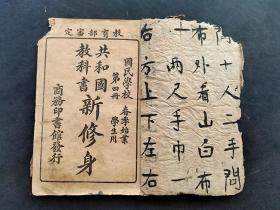 十人二手問
布外看山白布
一兩尺手巾一
右方上下左右
教育部審定
國民學校 春季始業
第四冊 學生用
共和國
教科書
新修身
商務印書館發行